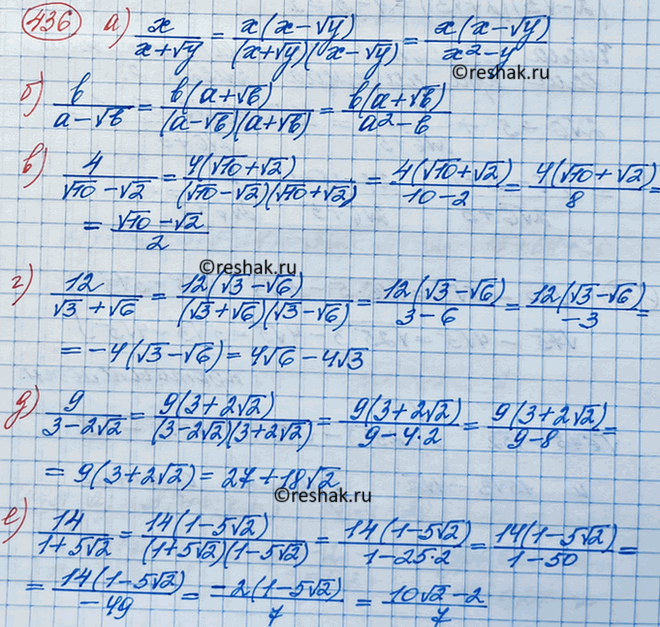 436 а) x/(x+√y) = x(x-√y)/((x+√y)(x-√y)) = x(x-√y)/(x²-y)
©reshak.ru
б) b/(a-√b) = b(a+√b)/((a-√b)(a+√b)) = b(a+√b)/(a²-b)
в) 4/(√10-√2) = 4(√10+√2)/((√10-√2)(√10+√2)) = 4(√10+√2)/(10-2) = 4(√10+√2)/8 =
= (√10-√2)/2
©reshak.ru
г) 12/(√3+√6) = 12(√3-√6)/((√3+√6)(√3-√6)) = 12(√3-√6)/(3-6) = 12(√3-√6)/(-3) =
= -4(√3-√6) = 4√6-4√3
д) 9/(3-2√2) = 9(3+2√2)/((3-2√2)(3+2√2)) = 9(3+2√2)/(9-4·2) = 9(3+2√2)/(9-8) =
= 9(3+2√2) = 27+18√2
©reshak.ru
е) 14/(1+5√2) = 14(1-5√2)/((1+5√2)(1-5√2)) = 14(1-5√2)/(1-25·2) = 14(1-5√2)/(1-50) =
= 14(1-5√2)/(-49) = -2(1-5√2)/7 = (10√2-2)/7